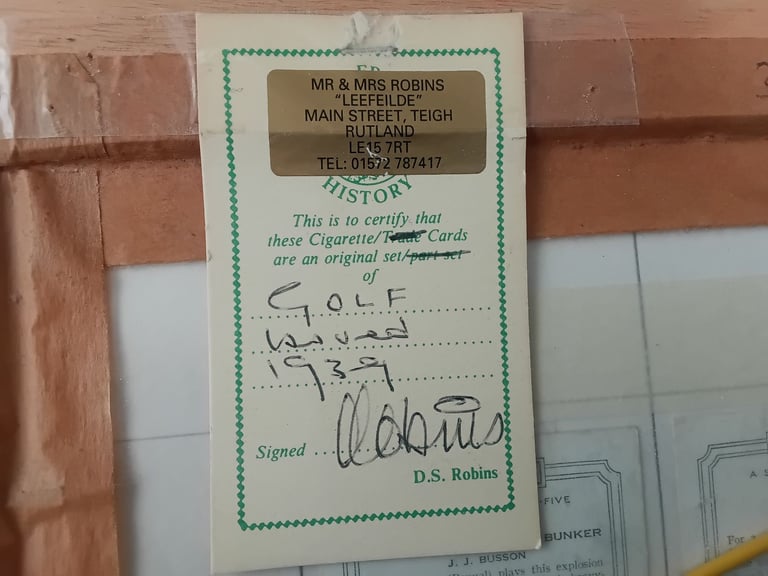 MR & MRS ROBINS
"LEEFEILDE"
MAIN STREET, TEIGH
RUTLAND
LE15 7RT
TEL: 01572 787417
HISTORY
This is to certify that
these Cigarette/Trade Cards
are an original set/part set
of
GOLF
issued
1939
Signed
D.S. Robins
D.S. Robins
-FIVE
BUNKER
J. J. BUSSON
plays this explosion
A S
For